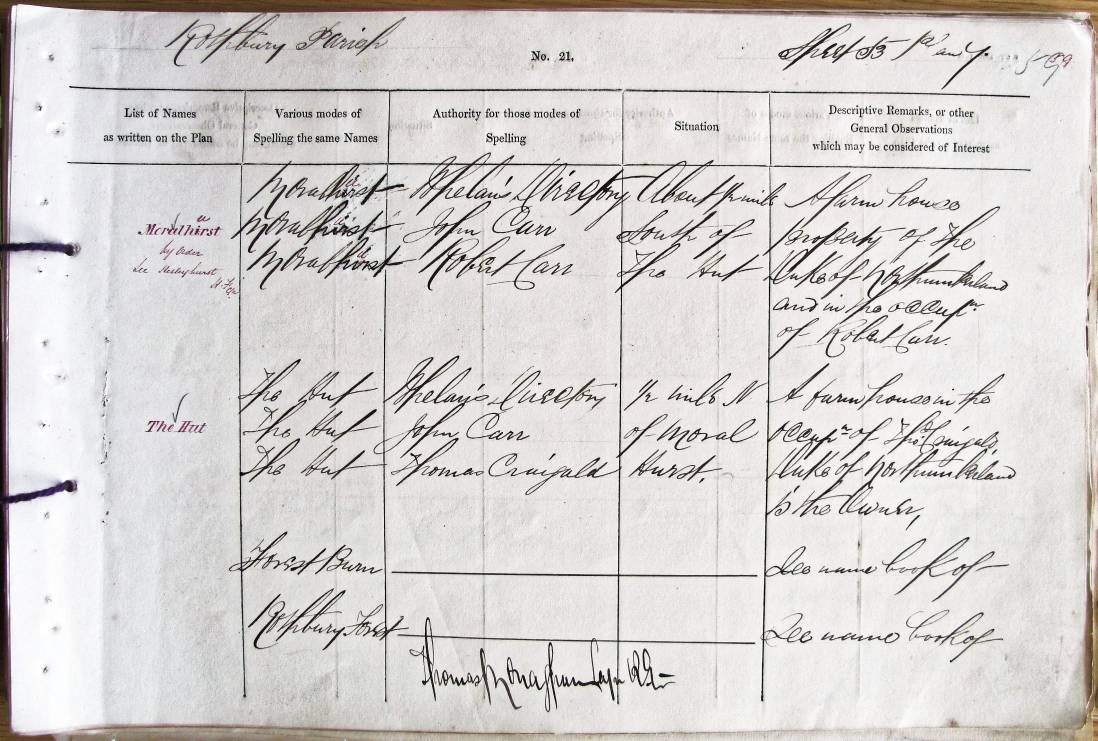 Rothbury Parish
No. 21.
Sheet 53
59
List of Names as written on the Plan
Various modes of Spelling the same Names
Authority for those modes of Spelling
Situation
Descriptive Remarks, or other General Observations which may be considered of Interest
Moralhirst Whelan's Directory About ½ mile A farm house
Moralhirst Moralhirst John Carr South of property of The
by order
Moralhirst Robert Carr The Hut Duke of Northumberland
See Hesleyhurst
and in the occupn
of Robert Carr.
The Hut Whelan's Directory ½ mile N A farm house in the
The Hut The Hut John Carr of Moral occupn of Thos Craigald,
The Hut Thomas Craigald Hurst. Duke of Northumberland
is the Owner,
Forest Burn See name book of
Rothbury Forest See name book of
Thomas Monaghan Capn RE